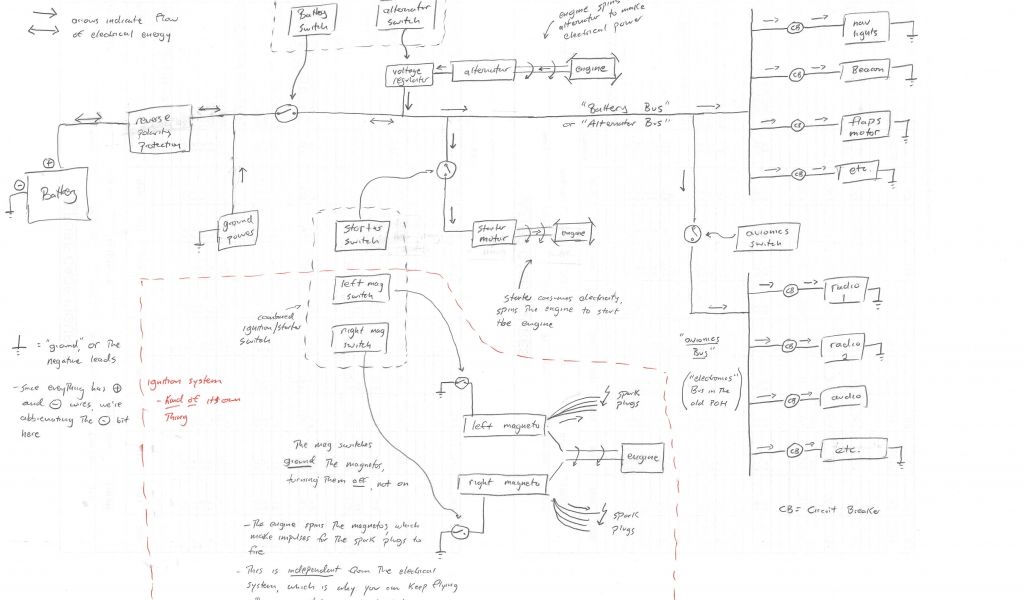 arrows indicate flow
of electrical energy
Battery
switch
alternator
switch
engine spins
alternator to make
electrical power
voltage
regulator
alternator
engine
"Battery Bus"
or "Alternator Bus"
CB
nav
lights
CB
Beacon
CB
flaps
motor
CB
etc.
reverse
polarity
protection
+
-
Battery
ground
power
starter
switch
starter
motor
engine
avionics
switch
left mag
switch
right mag
switch
combined
ignition/starter
switch
starter consumes electricity,
spins the engine to start
the engine
"avionics
Bus"
("electronics"
Bus in the
old POH)
CB
radio
1
CB
radio
2
CB
audio
CB
etc.
CB = Circuit Breaker
= "ground," or the
negative leads
- since everything has +
and - wires, we're
abbreviating the - bit
here
ignition system
- Kind of its own
thing
spark
plugs
left magneto
engine
right magneto
spark
plugs
The mag switches
ground the magnetos,
turning them off, not on
- The engine spins the magnetos, which
make impulses for the spark plugs to
fire
- This is independent from the electrical
system, which is why you can keep flying